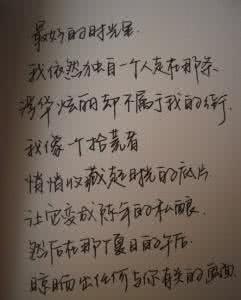 最好的时光里
我依然独自一个人走在那条
繁华炫丽却不属于我的街
我像个拾荒者
悄悄收藏起时光的底片
让它变成陈年的私酿
然后在那个夏日的午后
晾晒出任何与你有关的画面